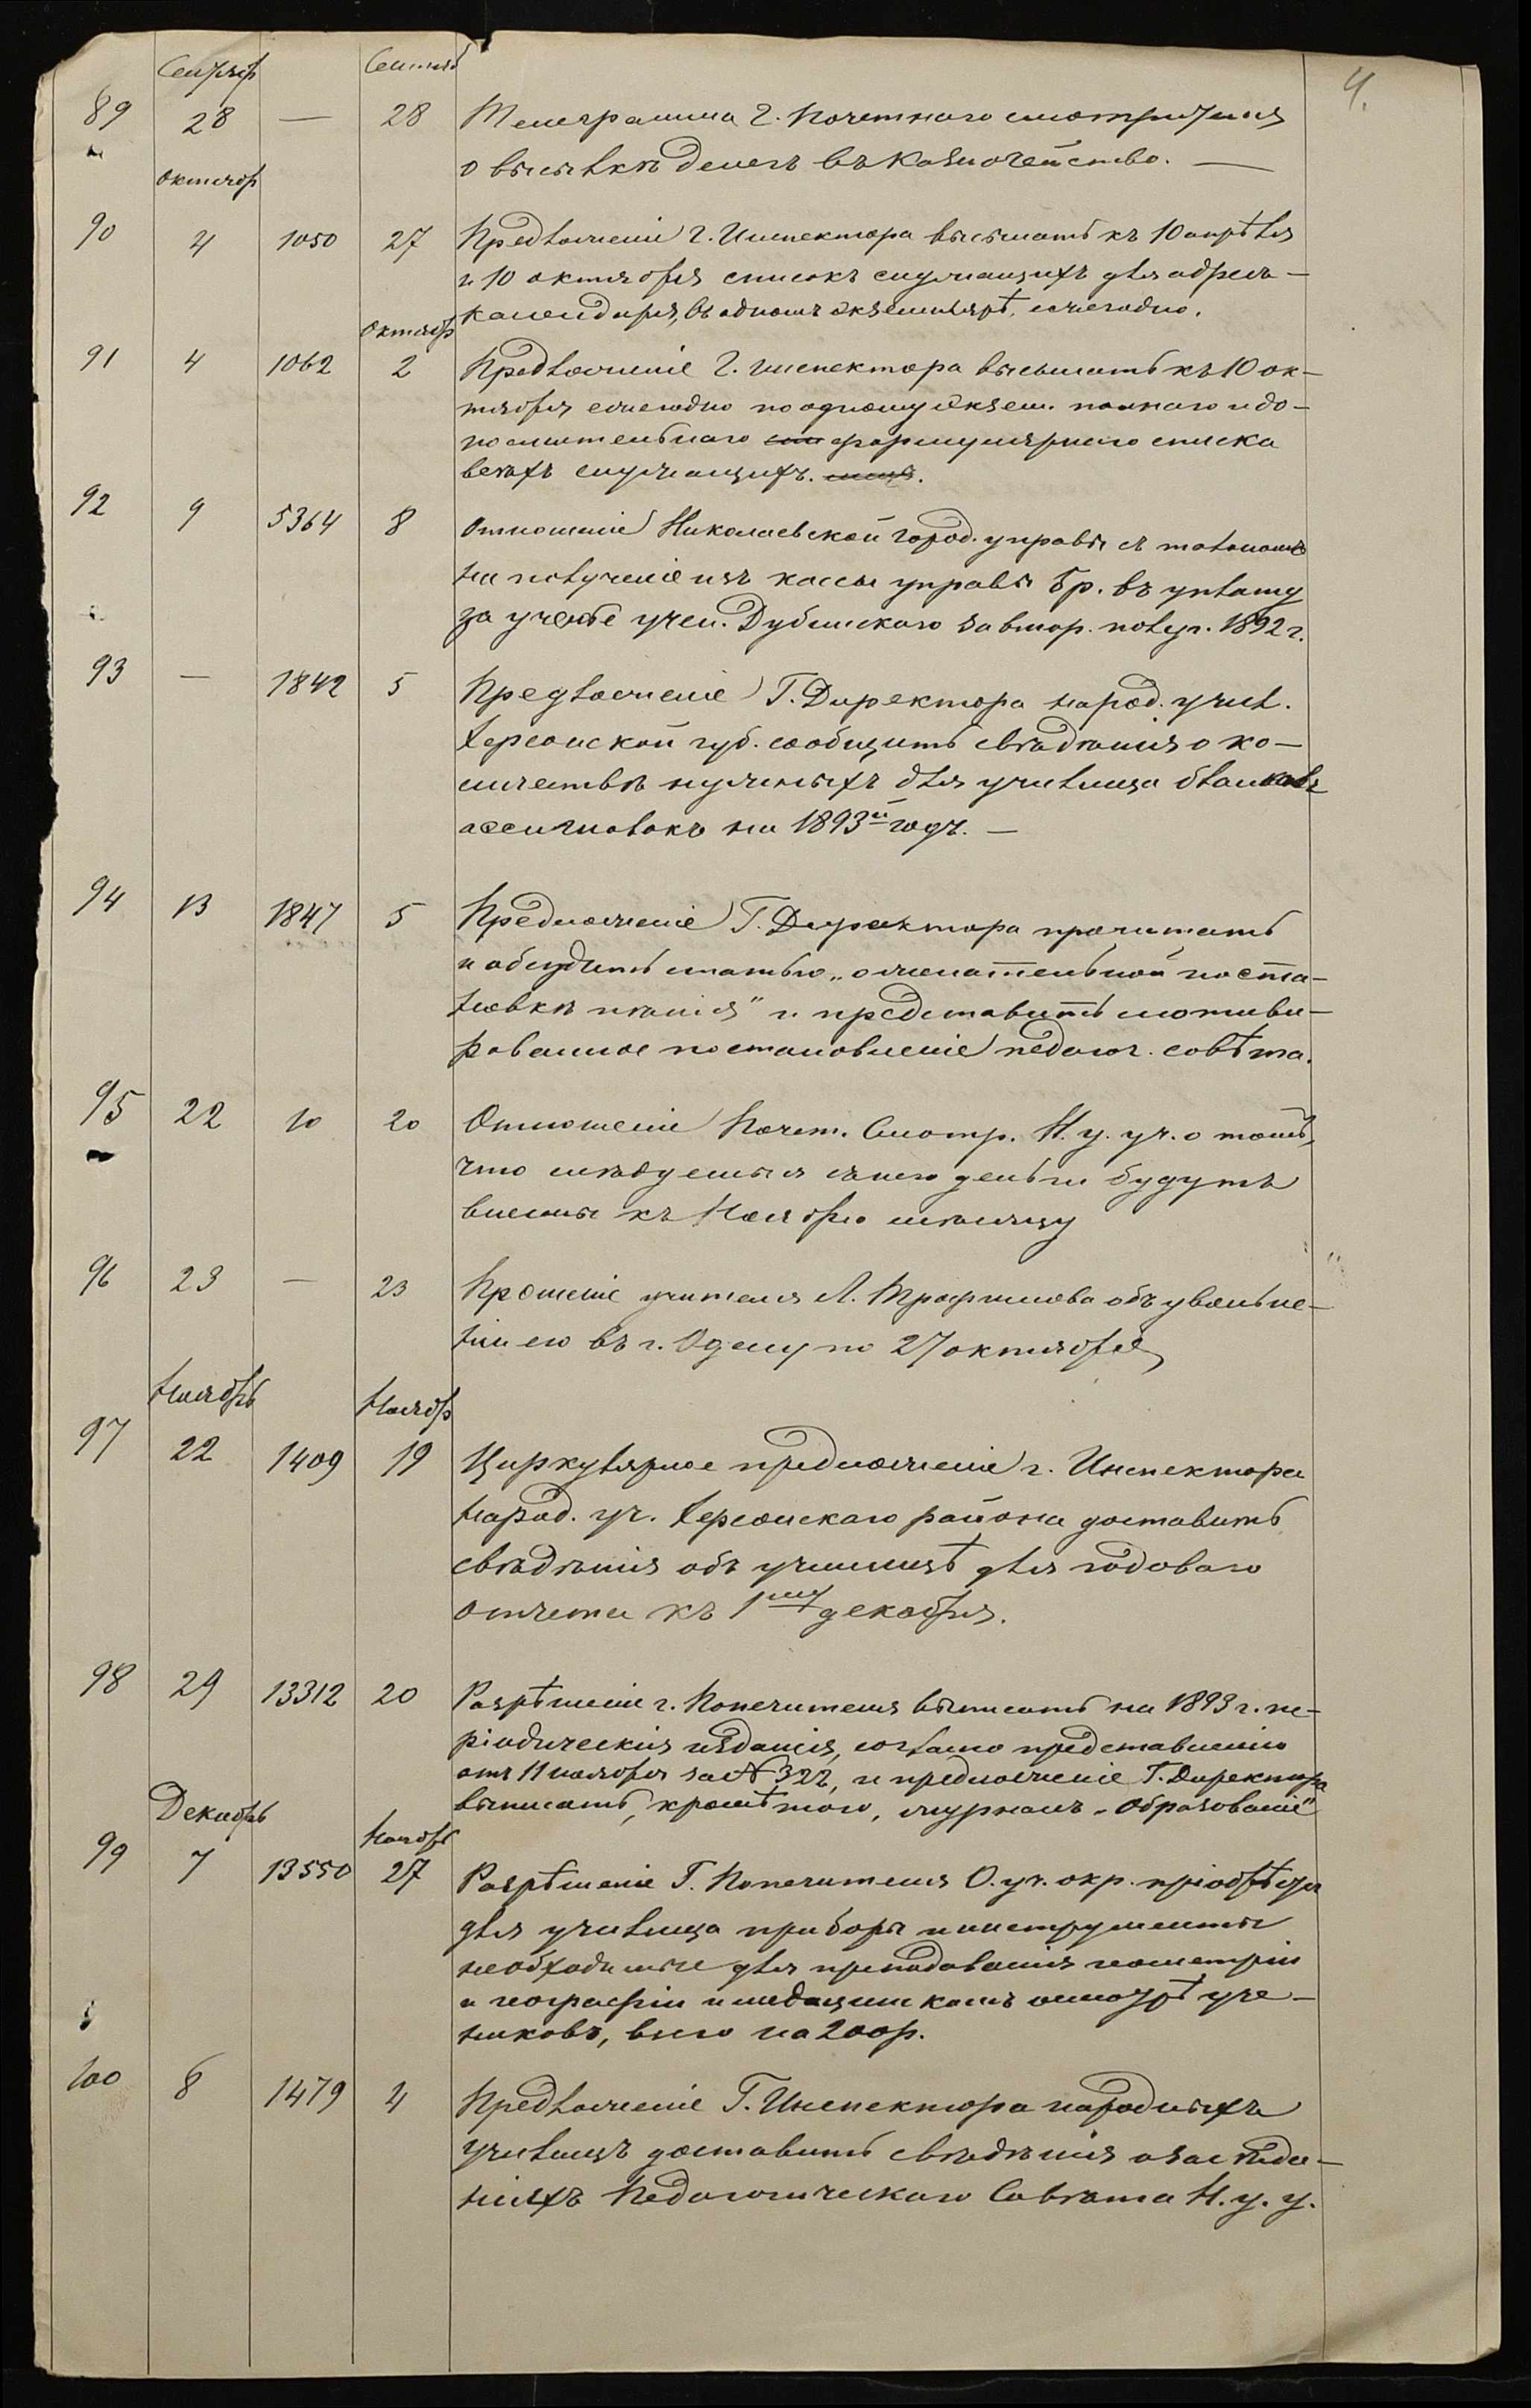 4.
Сентяб Сентяб
89 28 — 28 Телеграмма г. Почетнаго смотрителя
о высылкѣ денегъ въ Казначейство. —
Октябр
90 4 1050 27 Предложеніе г. Инспектора высылать къ 10 апрѣля
и 10 октября списокъ служащихъ для адресъ-
календаря, въ одномъ экземплярѣ, ежегодно.
Октябр
91 4 1062 2 Предложеніе г. инспектора высылать къ 10 ок-
тября ежегодно по одному экзем. полнаго и до-
полнительнаго формулярнаго списка
всѣхъ служащихъ.
92 9 5364 8 Отношеніе Николаевской город. управы съ талономъ
на полученіе изъ кассы управы 5 р. въ уплату
за ученье учен. Дубинскаго за втор. полуг. 1892 г.
93 — 1842 5 Предложеніе Г. Директора народ. учил.
Херсонской губ. сообщить свѣдѣнія о ко-
личествѣ нужныхъ для училища бланковъ
ассигновокъ на 1893й годъ. —
94 13 1847 5 Предложеніе Г. Директора прочитать
и обсудить статью „о желательной поста-
новкѣ пѣнія" и представить мотиви-
рованное постановленіе педагог. совѣта.
95 22 10 20 Отношеніе Почет. Смотр. Н. у. уч. о томъ,
что слѣдуемыя съ него деньги будутъ
внесены къ Ноябрю мѣсяцу
96 23 — 23 Прошеніе учителя Л. Трофимова объ увольне-
ніи его въ г. Одессу по 27 октября
Ноябрь Ноябр
97 22 1409 19 Циркулярное предложеніе г. Инспектора
народ. уч. Херсонскаго района доставить
свѣдѣнія объ училищѣ для годоваго
отчета къ 1му декабря.
98 29 13312 20 Разрѣшеніе г. Попечителя выписать на 1893 г. пе-
ріодическія изданія, согласно представленію
отъ 11 ноября за № 322, и предложеніе Г. Директора
выписать, кромѣ того, журналъ „Образованіе"
Декабрь Ноябрь
99 7 13550 27 Разрѣшеніе Г. Попечителя О. уч. окр. пріобрѣсти
для училища приборы и инструменты
необходимые для преподаванія геометріи
и географіи и медицинскомъ осмотрѣ уче-
никовъ, всего на 200 р.
100 8 1479 4 Предложеніе Г. Инспектора народныхъ
училищъ доставить свѣдѣнія о засѣда-
ніяхъ Педагогическаго Совѣта Н. у. у.